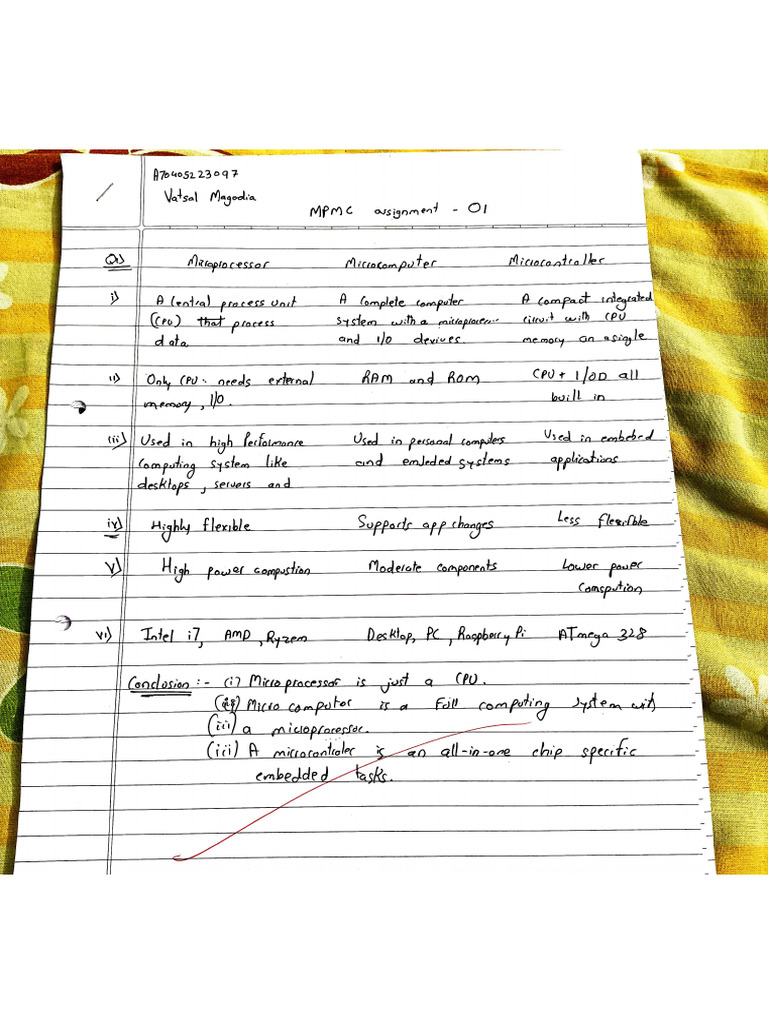 A70405223097
Vatsal Magodia
MPMC assignment - 01
Q1) Microprocessor Microcomputer Microcontraller
i) A Central process unit A complete computer A compact integrated
(CPU) that process system with a microprocen.. circuit with CPU
data and I/O devives. memory an asingle
ii) Only CPU: needs external RAM and ROM CPU + I/OD all
memory, I/O. built in
(iii) Used in high Performance Used in personal computers Used in embebed
computing system like and emleded systems applications
desktops, servers and
iv) Highly flexible Supports app changes Less flexible
v) High power compustion Moderate components Lower power
Comspution
vi) Intel i7, AMD, Ryzem Desktop, PC, Raspberry Pi ATmega 328
Conclusion :- (i) Microprocessor is just a CPU.
(ii) Micro computor is a Full computing system with
(iii) a microprocessor.
(iii) A microcontroler is an all-in-one chip specific
embedded tasks.